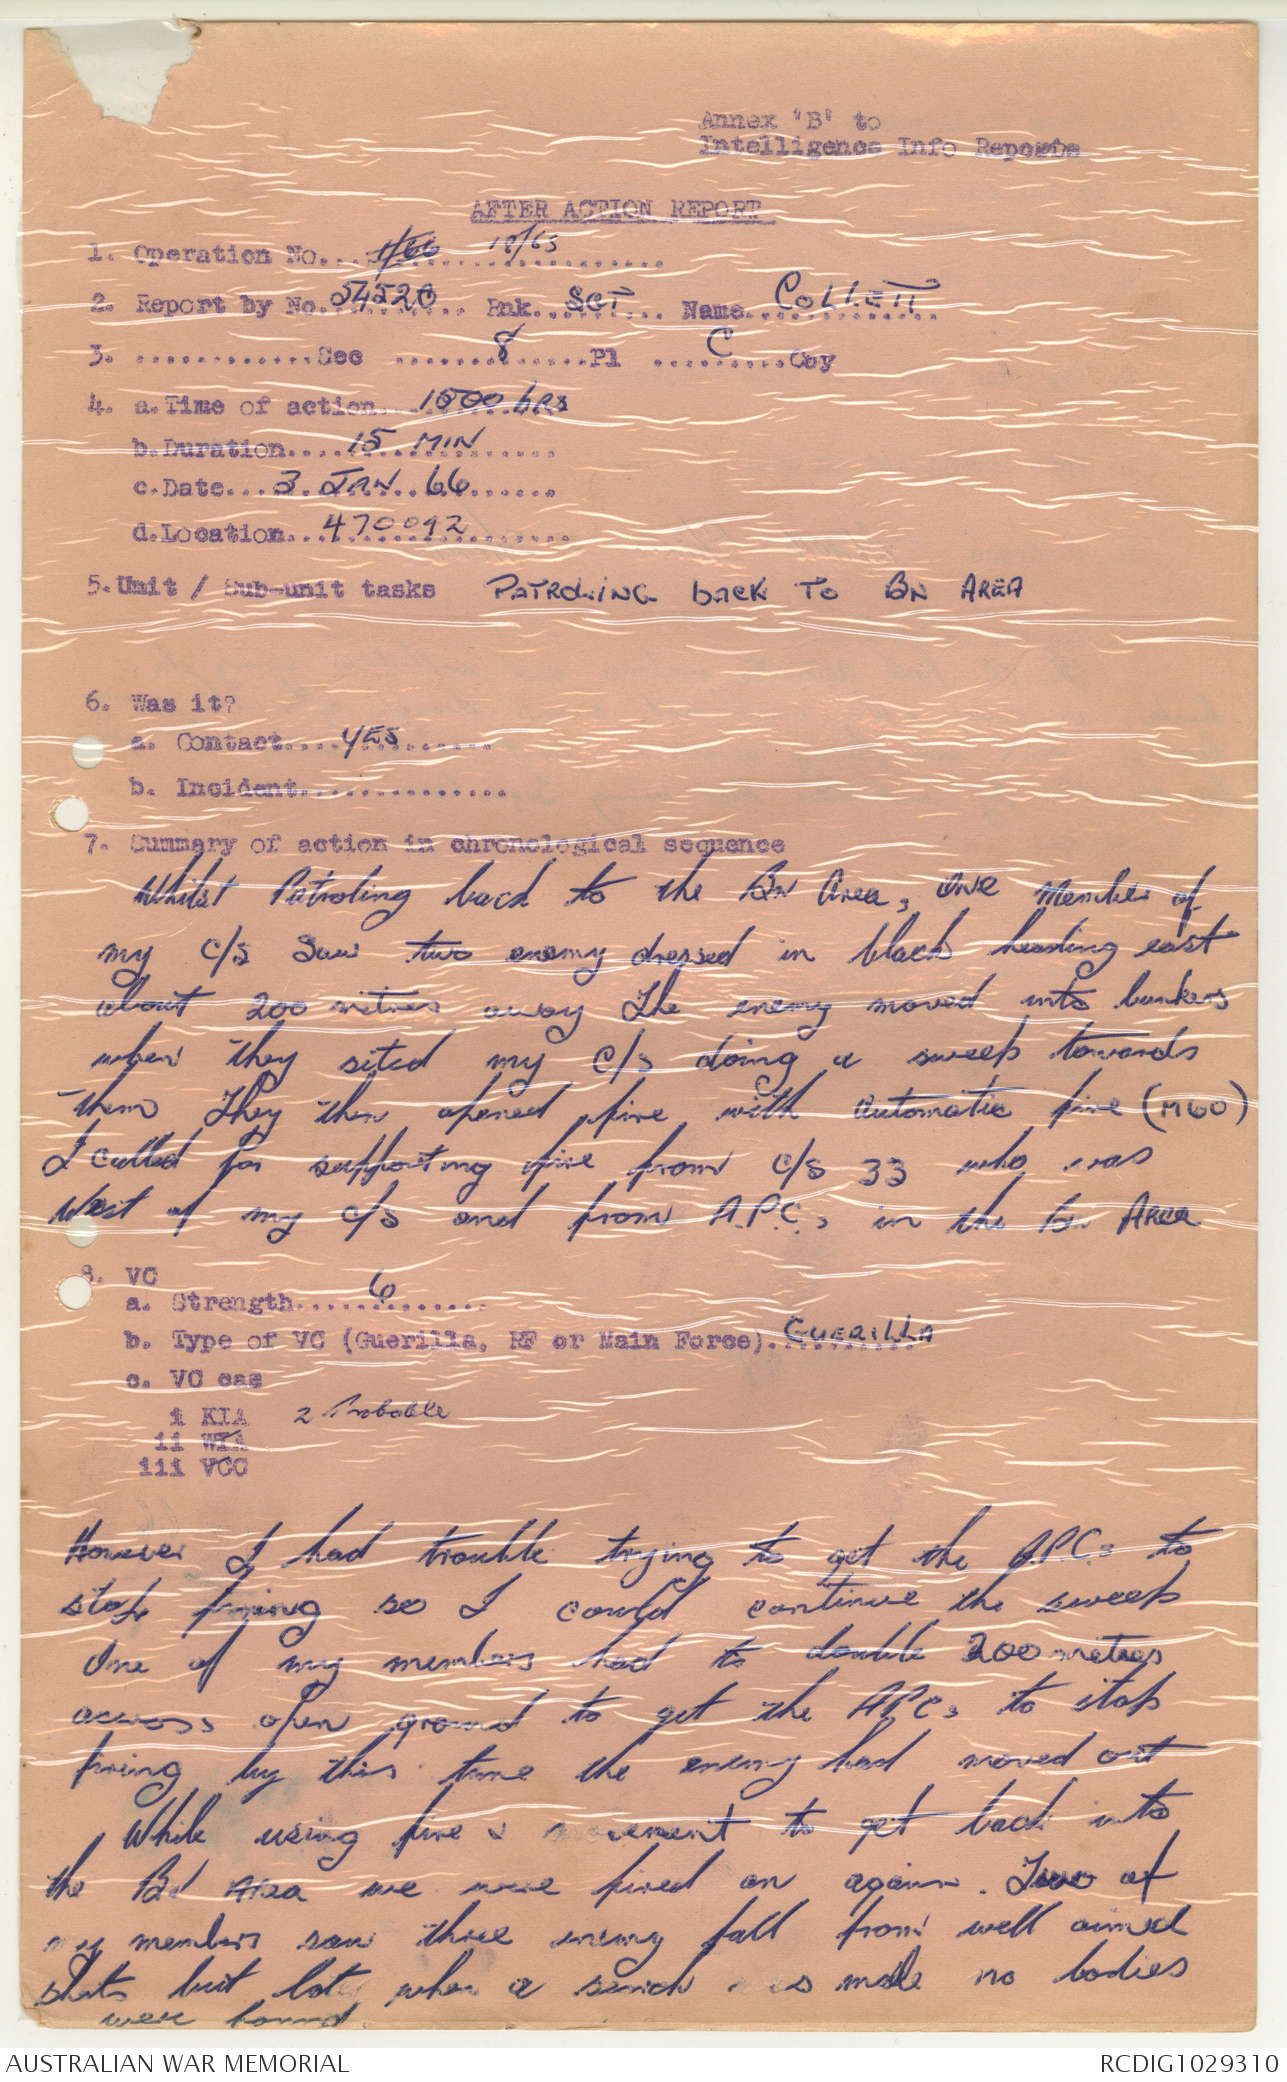 Annex 'B' to
Intelligence Info Reports
AFTER ACTION REPORT
1. Operation No... 1/66 18/65
2. Report by No. 54520 Rnk. SGT Name. COLLETT
3. .............Sec ......8......Pl .....C....Coy
4. a.Time of action. 1500 hrs
b.Duration.... 15 MIN
c.Date... 3 JAN 66
d.Location... 470092
5.Unit / Sub-unit tasks PATROLING back TO BN AREA
6. Was it?
a. Contact.... YES
b. Incident...............
7. Summary of action in chronological sequence
Whilst Patroling back to the BN Area, one Member of
my c/s Saw two enemy dressed in black heading east
about 200 metres away The enemy moved into bunkers
when they sited my c/s doing a sweep towards
them They then opened fire with automatic fire (M60)
I called for supporting fire from c/s 33 who was
West of my c/s and from A.P.C.s in the Bn Area
8. VC
a. Strength...... 6
b. Type of VC (Guerilla, RF or Main Force). GUERILLA
c. VC cas
i KIA 2 Probable
ii WIA
iii VCC
However I had trouble trying to get the A.P.C.s to
stop firing so I could continue the sweep
One of my members had to double 200 metres
across open ground to get the APCs to stop
firing by this time the enemy had moved out
While using fire & movement to get back into
the Bn Area we were fired on again. Two of
my members saw three enemy fall from well aimed
shots but late when a search was made no bodies
were found.
AUSTRALIAN WAR MEMORIAL
RCDIG1029310